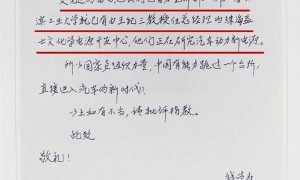 滨工业大学就已有由王纪三教授任总经理的珠海益
士文化学电源开发中心，他们正在研究汽车动力新电源。
所以国家要组织力量，中国有能力跳过一个台阶，
直接进入汽车的新时代！
以上如有不当，请批评指教。
此致
敬礼！
钱学森